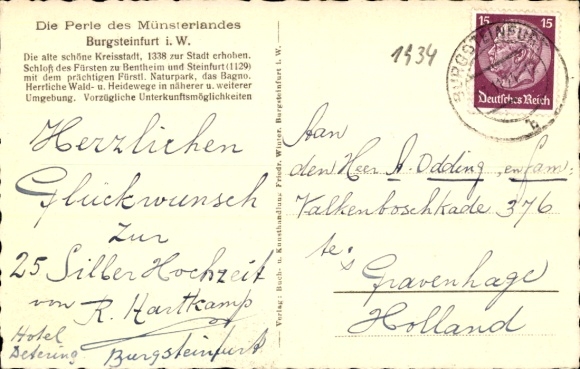 Die Perle des Münsterlandes
Burgsteinfurt i. W.
Die alte schöne Kreisstadt, 1338 zur Stadt erhoben.
Schloß des Fürsten zu Bentheim und Steinfurt (1129)
mit dem prächtigen Fürstl. Naturpark, das Bagno.
Herrliche Wald- u. Heidewege in näherer u. weiterer
Umgebung. Vorzügliche Unterkunftsmöglichkeiten
Herzlichen
Glückwunsch
zur
25 Silber Hochzeit
von R. Hartkamp
Hotel
Detering Burgsteinfurt
Verlag: Buch- u. Kunsthandlung Friedr. Winter, Burgsteinfurt i. W.
1934
15 15
Deutsches Reich
BURGSTEINFURT
b
Aan
den Heer A. Odding, en fam:
Valkenboschkade 376
te:
's Gravenhage
Holland